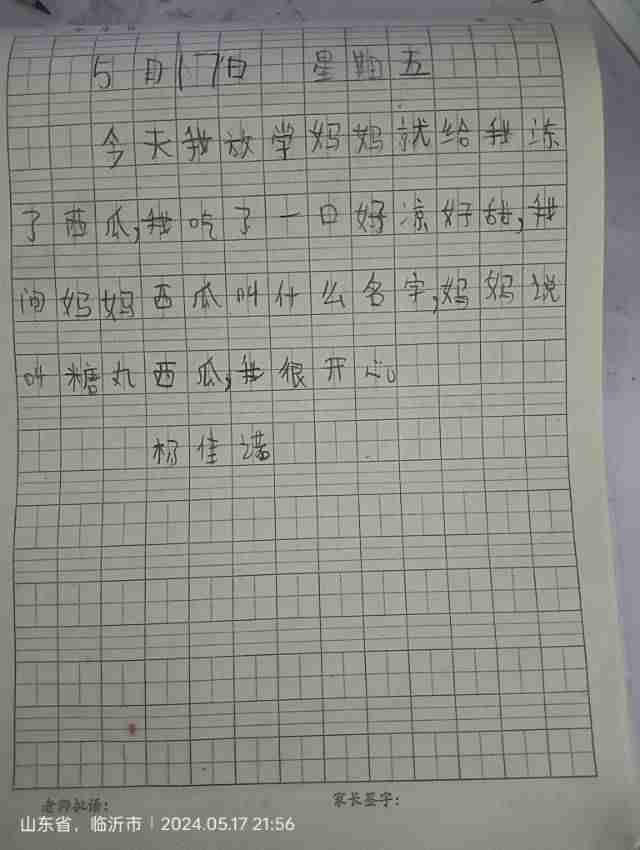 5月17日 星期五
今天我放学妈妈就给我冻
了西瓜,我吃了一口好凉好甜,我
问妈妈西瓜叫什么名字,妈妈说
叫糖丸西瓜,我很开心
杨佳诺
老师批语: 家长签字:
山东省，临沂市 | 2024.05.17 21:56